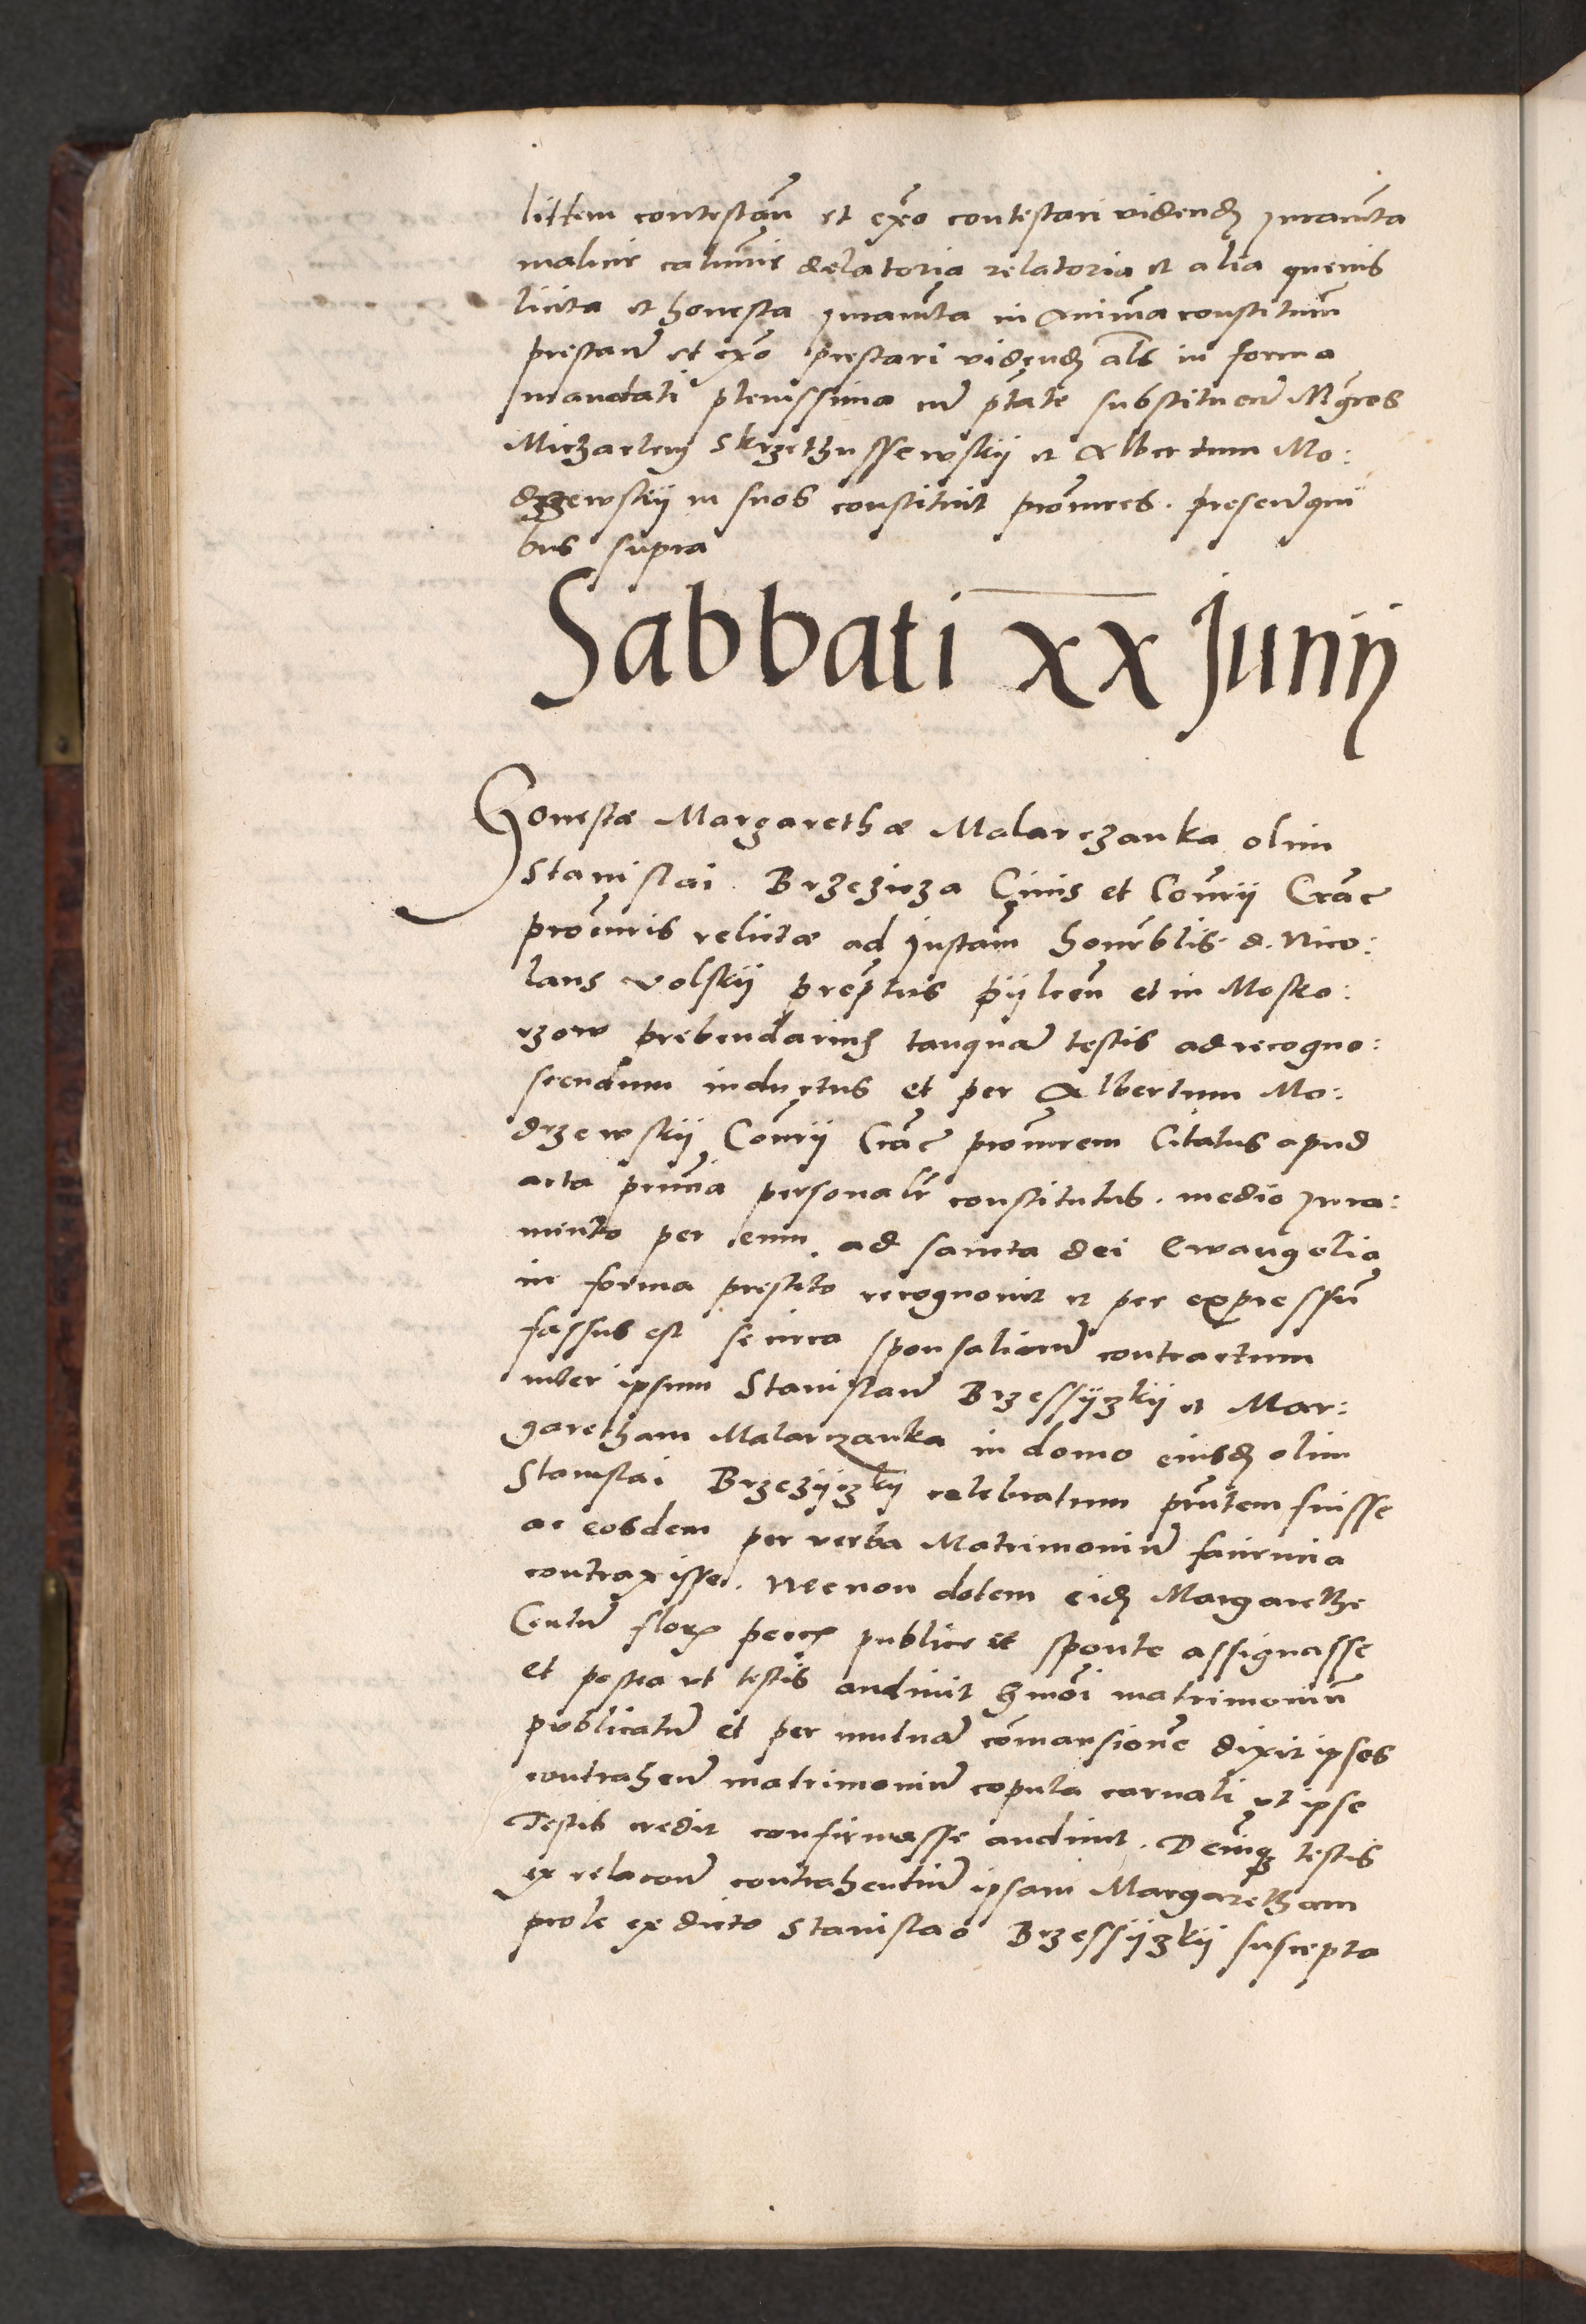 littem contestan̄ et ex̄o contestari videnđ Juramta
malicie calumīe delatoria relatoria et alia quevis
licita et honesta Juramta in Anima constituēn
prestanđ et ex̄o prestari videnđ als in forma
mandati plenissima cū ptāte substituenđ Mgr̄os
Michaelem Skrzethussewskÿ et Albertum Mo:
drzewskÿ in suos constituit procūres. presen̄ qui
bus supra
Sabbati xx Junÿ
Honestæ Margarethæ Malarczanka olim
Stanislai Brzezicza Civis et Con̄rÿ Crac̄
procūris relictæ ad Instan̄ honr̄blis d. Nico:
laus Volskÿ prep̄tus pÿlcen̄ et in Mosko:
rzow prebendarius tanquā testis ad recogno:
scendum inductus et per Albertum Mo:
drzewskÿ Con̄rÿ Crac̄ procūrem Citatus apud
acta prn̄cia personalr̄ constitutus. medio Jura:
mento per eum ad sancta dei Ewangelia
in forma prestito recognovit et per expressū
fassus est se circa sponsaliorū contractum
inter ipsum Stanislaū Brzessÿzkÿ et Mar:
garetham Malarczanka in domo eiusđ olim
Stanislai Brzezÿczkÿ celebratum prn̄tem fuisse
ac eosdem per verba Matrimoniū faciencia
contraxisse. Necnon dotem eiđ Margarethe
Centū flor pecc publice et sponte assignasse
et postea ut testis audivit hmōi matrimoniū
publicatū et per mutuā comansione dixit ipsos
contrahen̄ matrimoniū copula carnali ut ipse
Testis credit confirmasse audivit. Deniq testis
ex relacone contrahentiū ipsam Margaretham
prole ex dicto Stanislao Brzessÿzkÿ suscepta